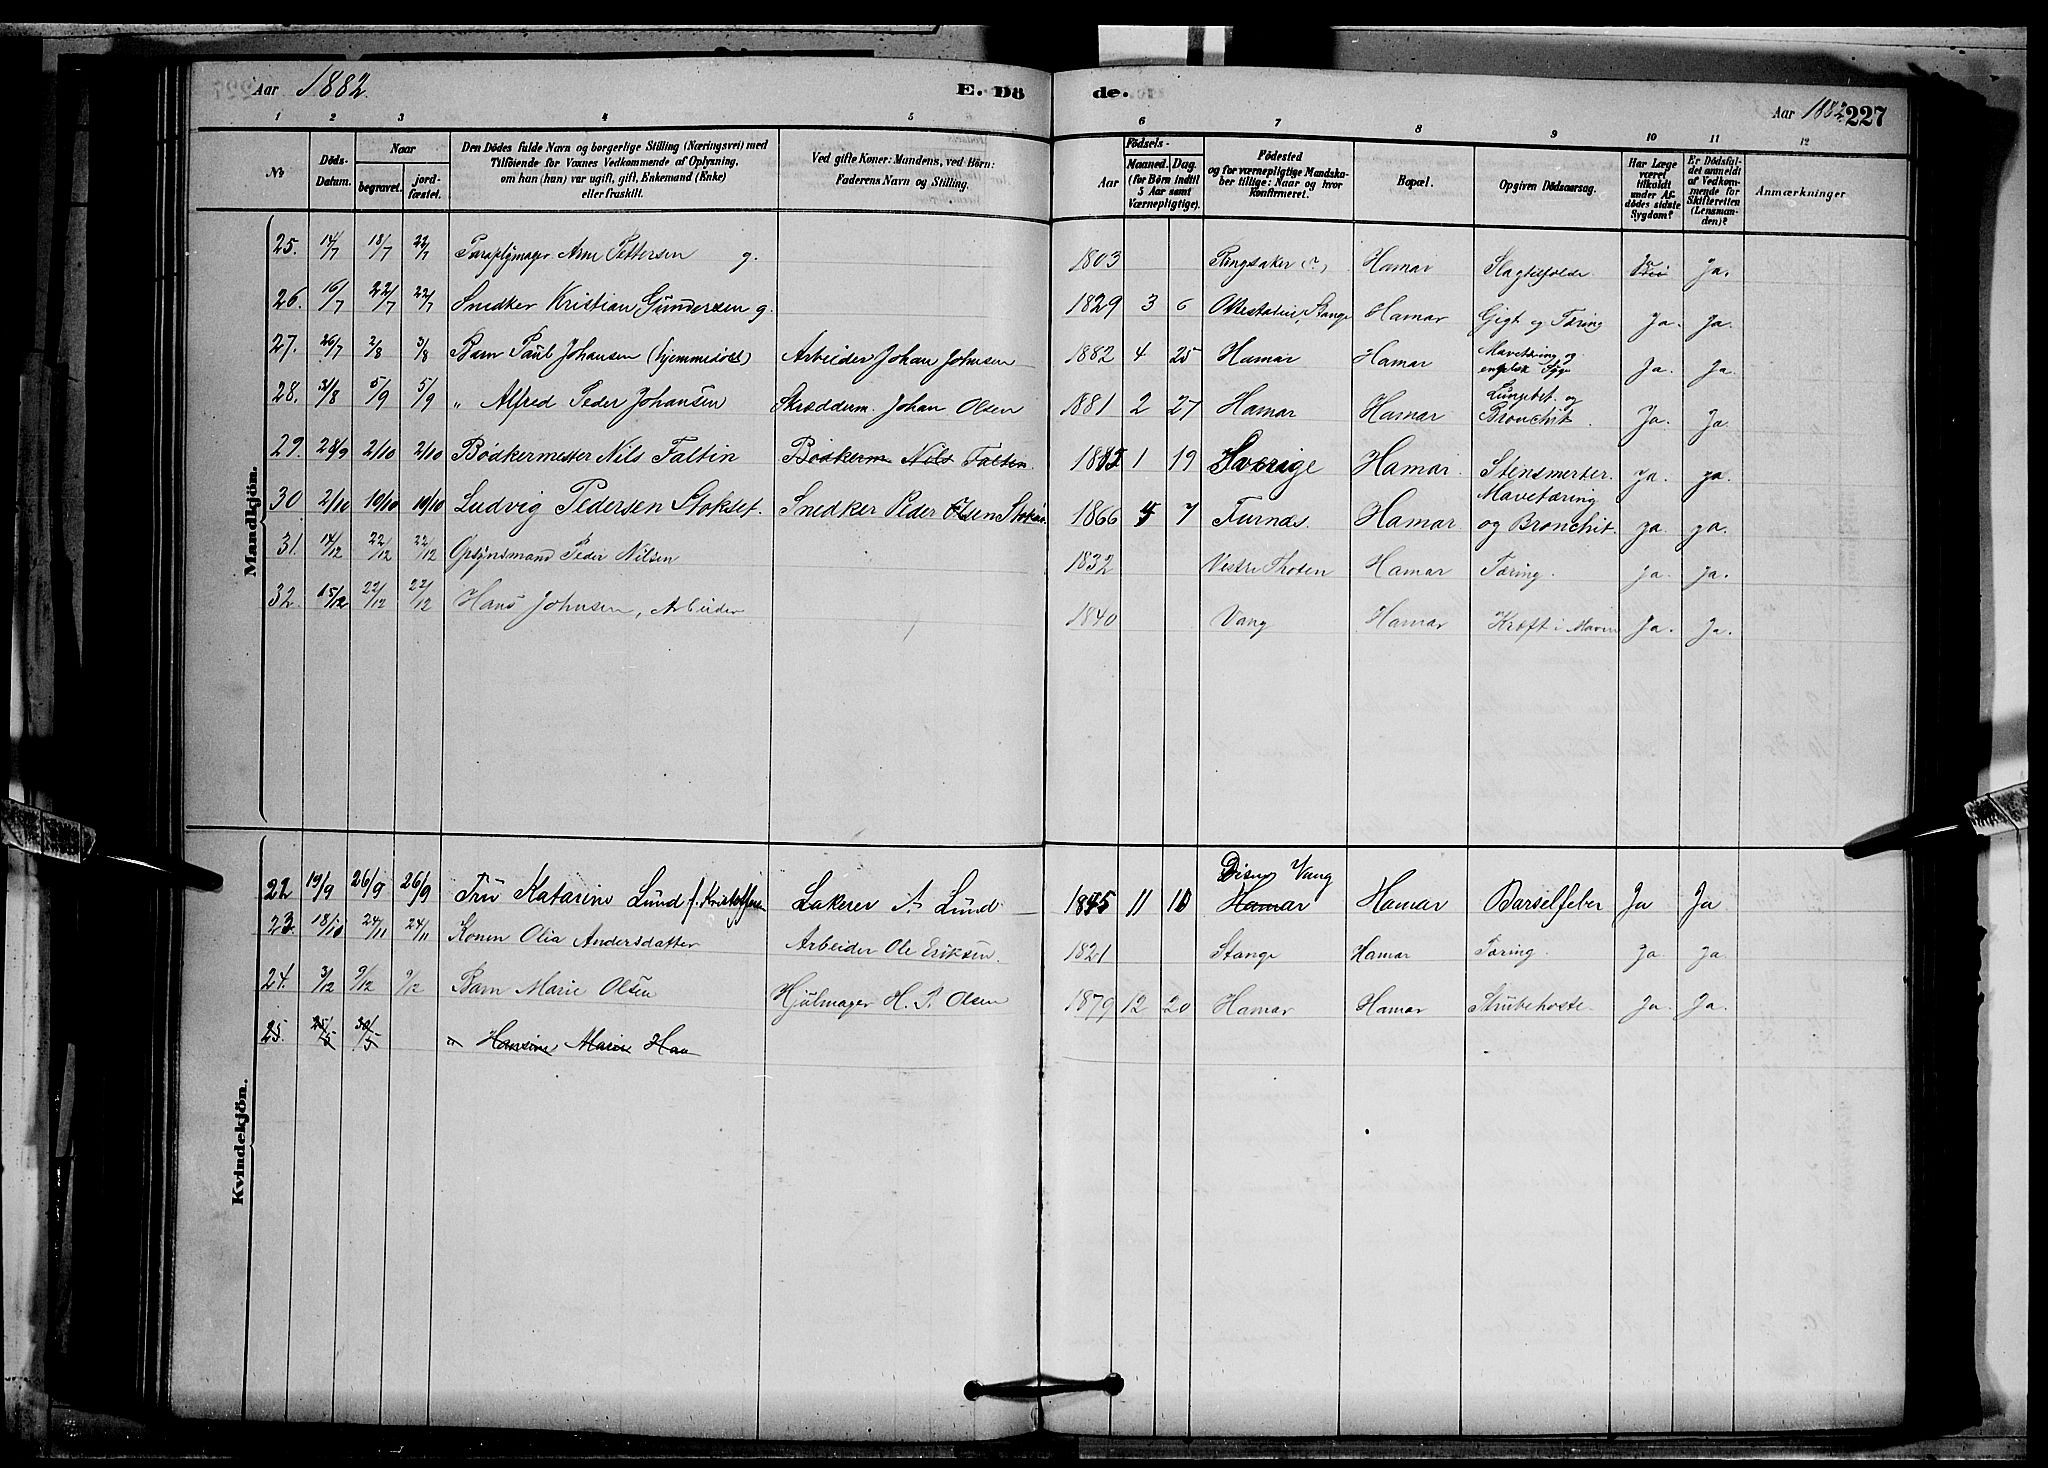 Aar 1882. E. Dö de. Aar 1882. 227
1 2 3 4 5 6 7 8 9 10 11 12
No
Döds-Datum.
Naar
begravet.
jord-fæstet.
Den Dödes fulde Navn og borgerlige Stilling (Næringsvei) med
Tilföiende for Voxnes Vedkommende af Oplysning,
om han (hun) var ugift, gift, Enkemand (Enke)
eller fraskilt.
Ved gifte Koner: Mandens, ved Börn:
Faderens Navn og Stilling.
Födsels-
Aar
Maaned. Dag.
(for Börn indtil
5 Aar samt
Værnepligtige).
Födested
og for værnepligtige Mandska-
ber tillige: Naar og hvor
konfirmeret.
Bopæl.
Opgiven Dödsaarsag.
Har Læge
været
tilkaldt
under Af-
dödes sidste
Sygdom?
Er Dödsfal-
det anmeldt
af Vedkom-
mende for
Skifteretten
(Lensman-
den)?
Anmærkninger
Mandkjön.
25. 14/7 18/7 22/7 Paraplymager Arne Pettersen g. 1803 Ringsaker (?) Hamar Slagtilfælde Ja Ja.
26. 16/7 22/7 22/7 Snedker Kristian Gundersen g. 1829 3 6 Ottestaden, Stange Hamar Gigt og Tæring Ja. Ja.
27. 26/7 2/8 3/8 Barn Paul Johansen (hjemmedöbt) Arbeider Johan Johnsen 1882 4 25 Hamar Hamar Mavetæring og
engelsk Syge Ja. Ja.
28. 31/8 5/9 5/9 " Alfred Peder Johansen Skrædderm. Johan Olsen 1881 2 27 Hamar Hamar Lungebet. og
Bronchit. Ja. Ja
29. 28/9 2/10 2/10 Bödkermester Nils Faltin Bödkerm Nils Faltin 1 19 Sverige Hamar. Stensmerter. ja. ja.
30 2/10 10/10 10/10 Ludvig Pedersen Stokset. Snedker Peder Olsen 1866 5 7 Furnæs. Hamar Mavetæring
og Bronchit. ja. ja.
31. 14/12 22/12 22/12 Opsynsmand Peder Nilsen 1832 Vestre Thoten Hamar Tæring. ja. Ja.
32. 15/12 22/12 22/12 Hans Johnsen, Arbeider 1840 Vang Hamar Kræft i Maven Ja. Ja.
Kvindekjön.
22 19/9 26/9 26/9 Fru Katarine Lund f. Kristoffersen Lakerer A Lund 11 10 Disen Vang
Hamar Hamar Barselfeber Ja Ja
23. 18/10 24/11 24/11 Konen Olia Andersdatter Arbeider Ole Eriksen. 1821 Stange Hamar Tæring. ja Ja.
24. 3/12 9/12 9/12 Barn Marie Olsen Hjulmager H. P. Olsen 1879 12 20 Hamar Hamar Strubehoste. Ja. Ja.
25. 25/5 30/5 " Hansine Marie Han